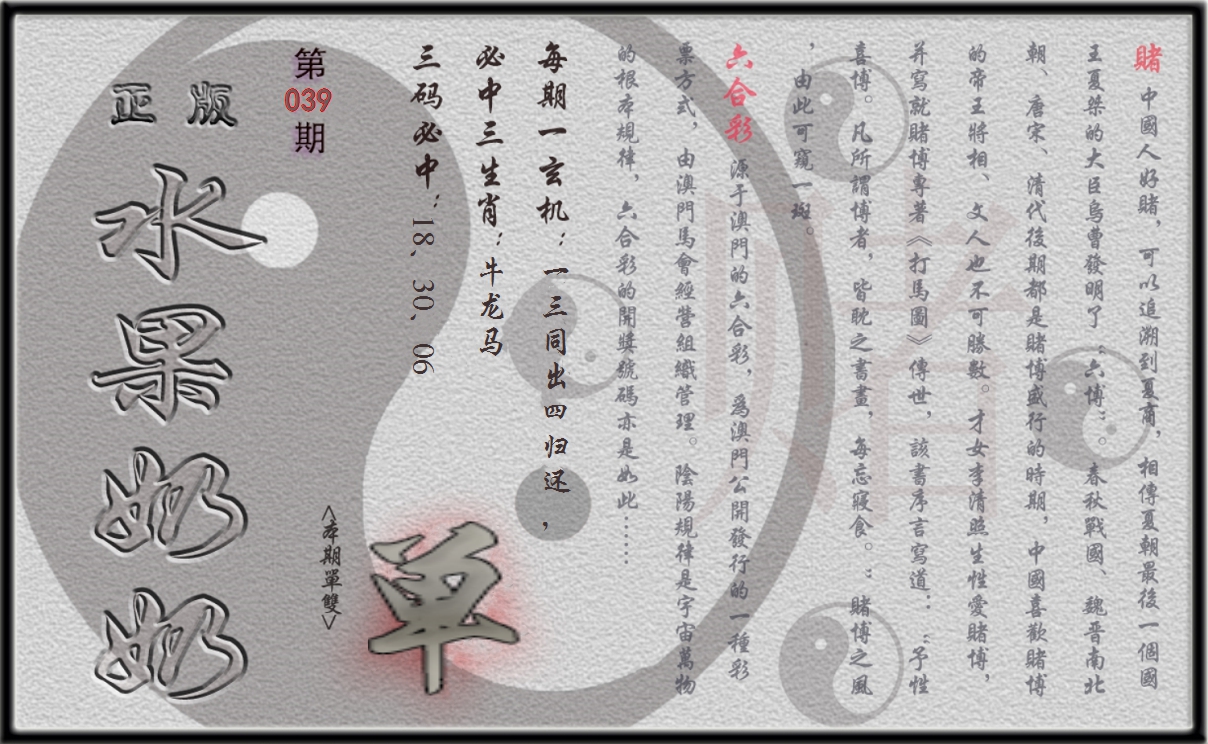 賭 中國人好賭，可以追溯到夏商，相傳夏朝最後一個國
王夏桀的大臣烏曹發明了“六博”。春秋戰國、魏晋南北
朝、唐宋、清代後期都是賭博盛行的時期，中國喜歡賭博
的帝王將相、文人也不可勝數。才女李清照生性愛賭博，
并寫就賭博專著《打馬圖》傳世，該書序言寫道：“予性
喜博。凡所謂博者，皆耽之書畫，每忘寢食。：賭博之風
，由此可窺一斑。
六合彩 源于澳門的六合彩，爲澳門公開發行的一種彩
票方式，由澳門馬會經營組織管理。陰陽規律是宇宙萬物
的根本規律，六合彩的開獎號碼亦是如此……
每期一玄机：一三同出四归还，
必中三生肖：牛龙马
三码必中：18、30、06
單
<本期單雙>
第
039
期
正版
水果奶奶
赌